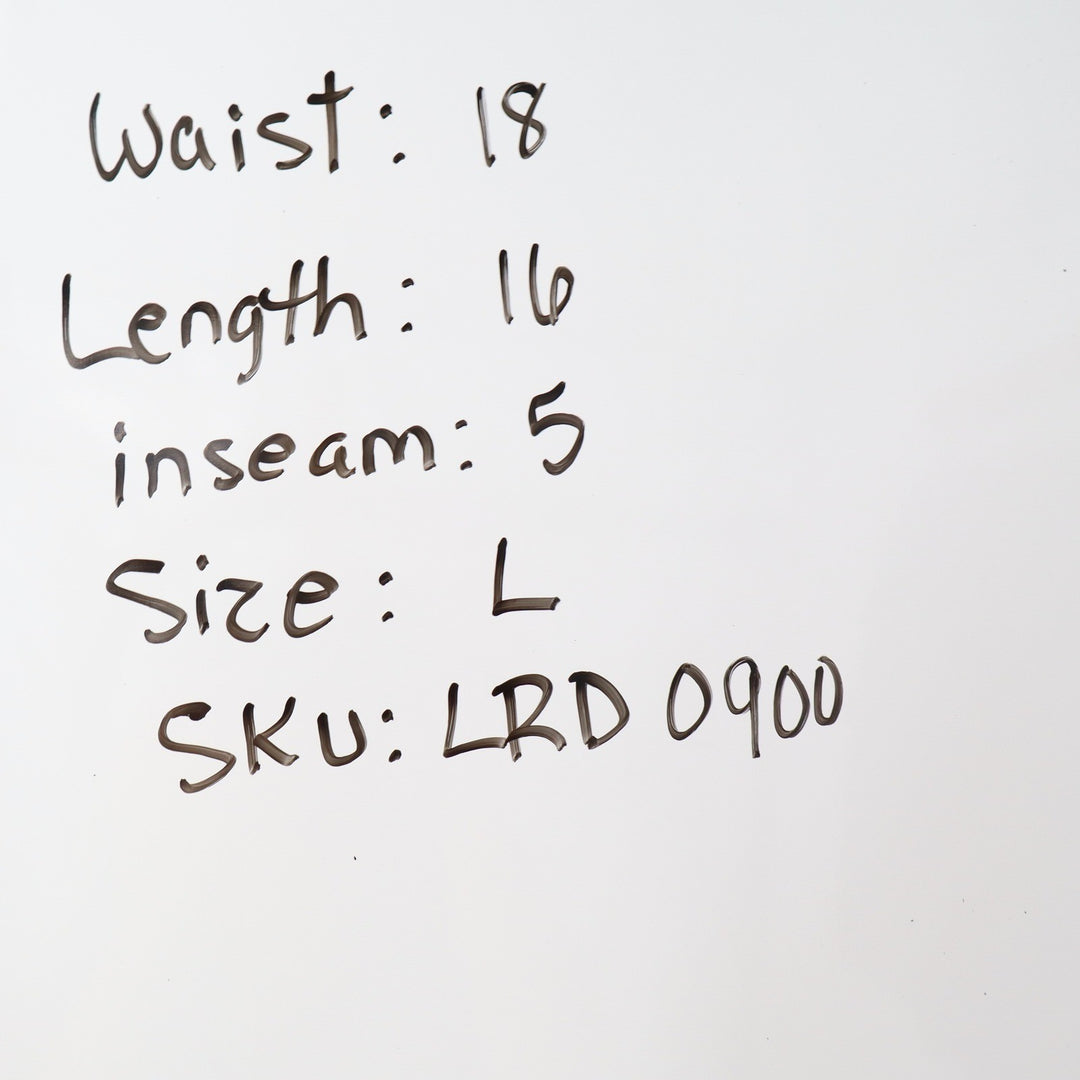 Waist: 18
Length: 16
inseam: 5
Size: L
SKU: LRD 0900